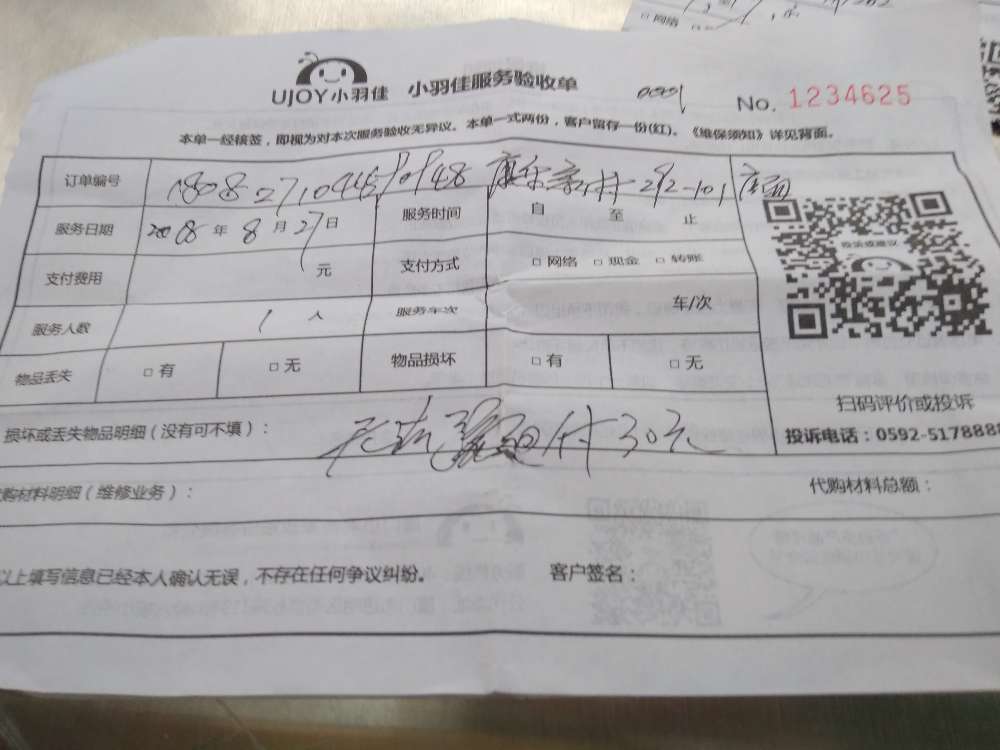 □ 网络
UJOY小羽佳 小羽佳服务验收单 No. 1234625
本单一经核签，即视为对本次服务验收无异议。本单一式两份，客户留存一份(红)。《维保须知》详见背面。
订单编号
服务日期 2008 年 8 月 27 日 服务时间 自 至 止
投诉或建议
支付费用 元 支付方式 □ 网络 □ 现金 □ 转账
服务人数 1 人 服务车次 车/次
物品丢失 □ 有 □ 无 物品损坏 □ 有 □ 无
扫码评价或投诉
损坏或丢失物品明细（没有可不填）： 付30元
投诉电话：0592-5178888
购材料明细（维修业务）： 代购材料总额：
以上填写信息已经本人确认无误，不存在任何争议纠纷。 客户签名：